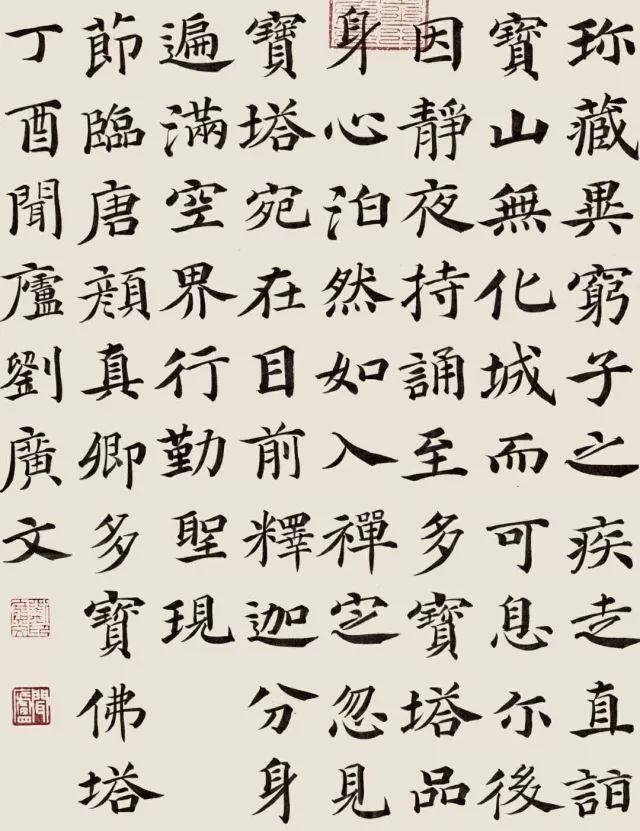 珎藏異窮子之疾走直詣
寶山無化城而可息尒後
因靜夜持誦至多寶塔品
身心泊然如入禪定忽見
寶塔宛在目前釋迦分身
遍滿空界行勤聖現
節臨唐顏真卿多寶佛塔
丁酉聞廬劉廣文
聞廬